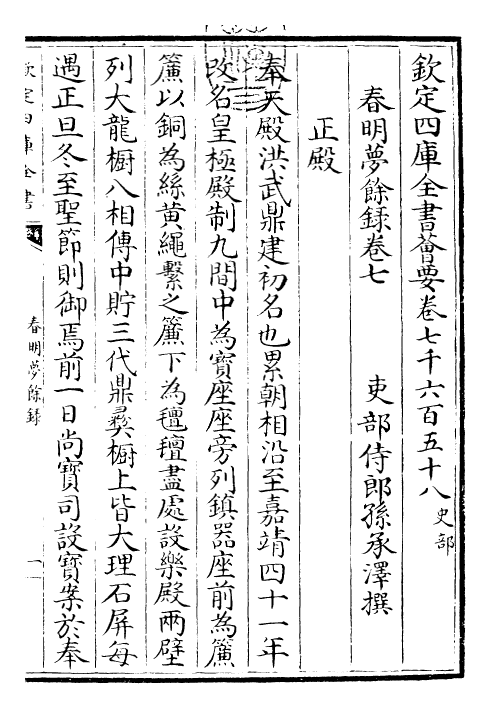 欽定四庫全書薈要卷七千六百五十八 史部
春明夢餘録卷七
吏部侍郎孫承澤撰
正殿
奉天殿洪武鼎建初名也累朝相沿至嘉靖四十一年
改名皇極殿制九間中為寶座座旁列鎮器座前為簾
簾以銅為絲黃繩繫之簾下為氊氊盡處設樂殿兩壁
列大龍櫥八相傳中貯三代鼎彝櫥上皆大理石屏每
遇正旦冬至聖節則御焉前一日尚寶司設寶案於奉
欽定四庫全書
春明夢餘録
一